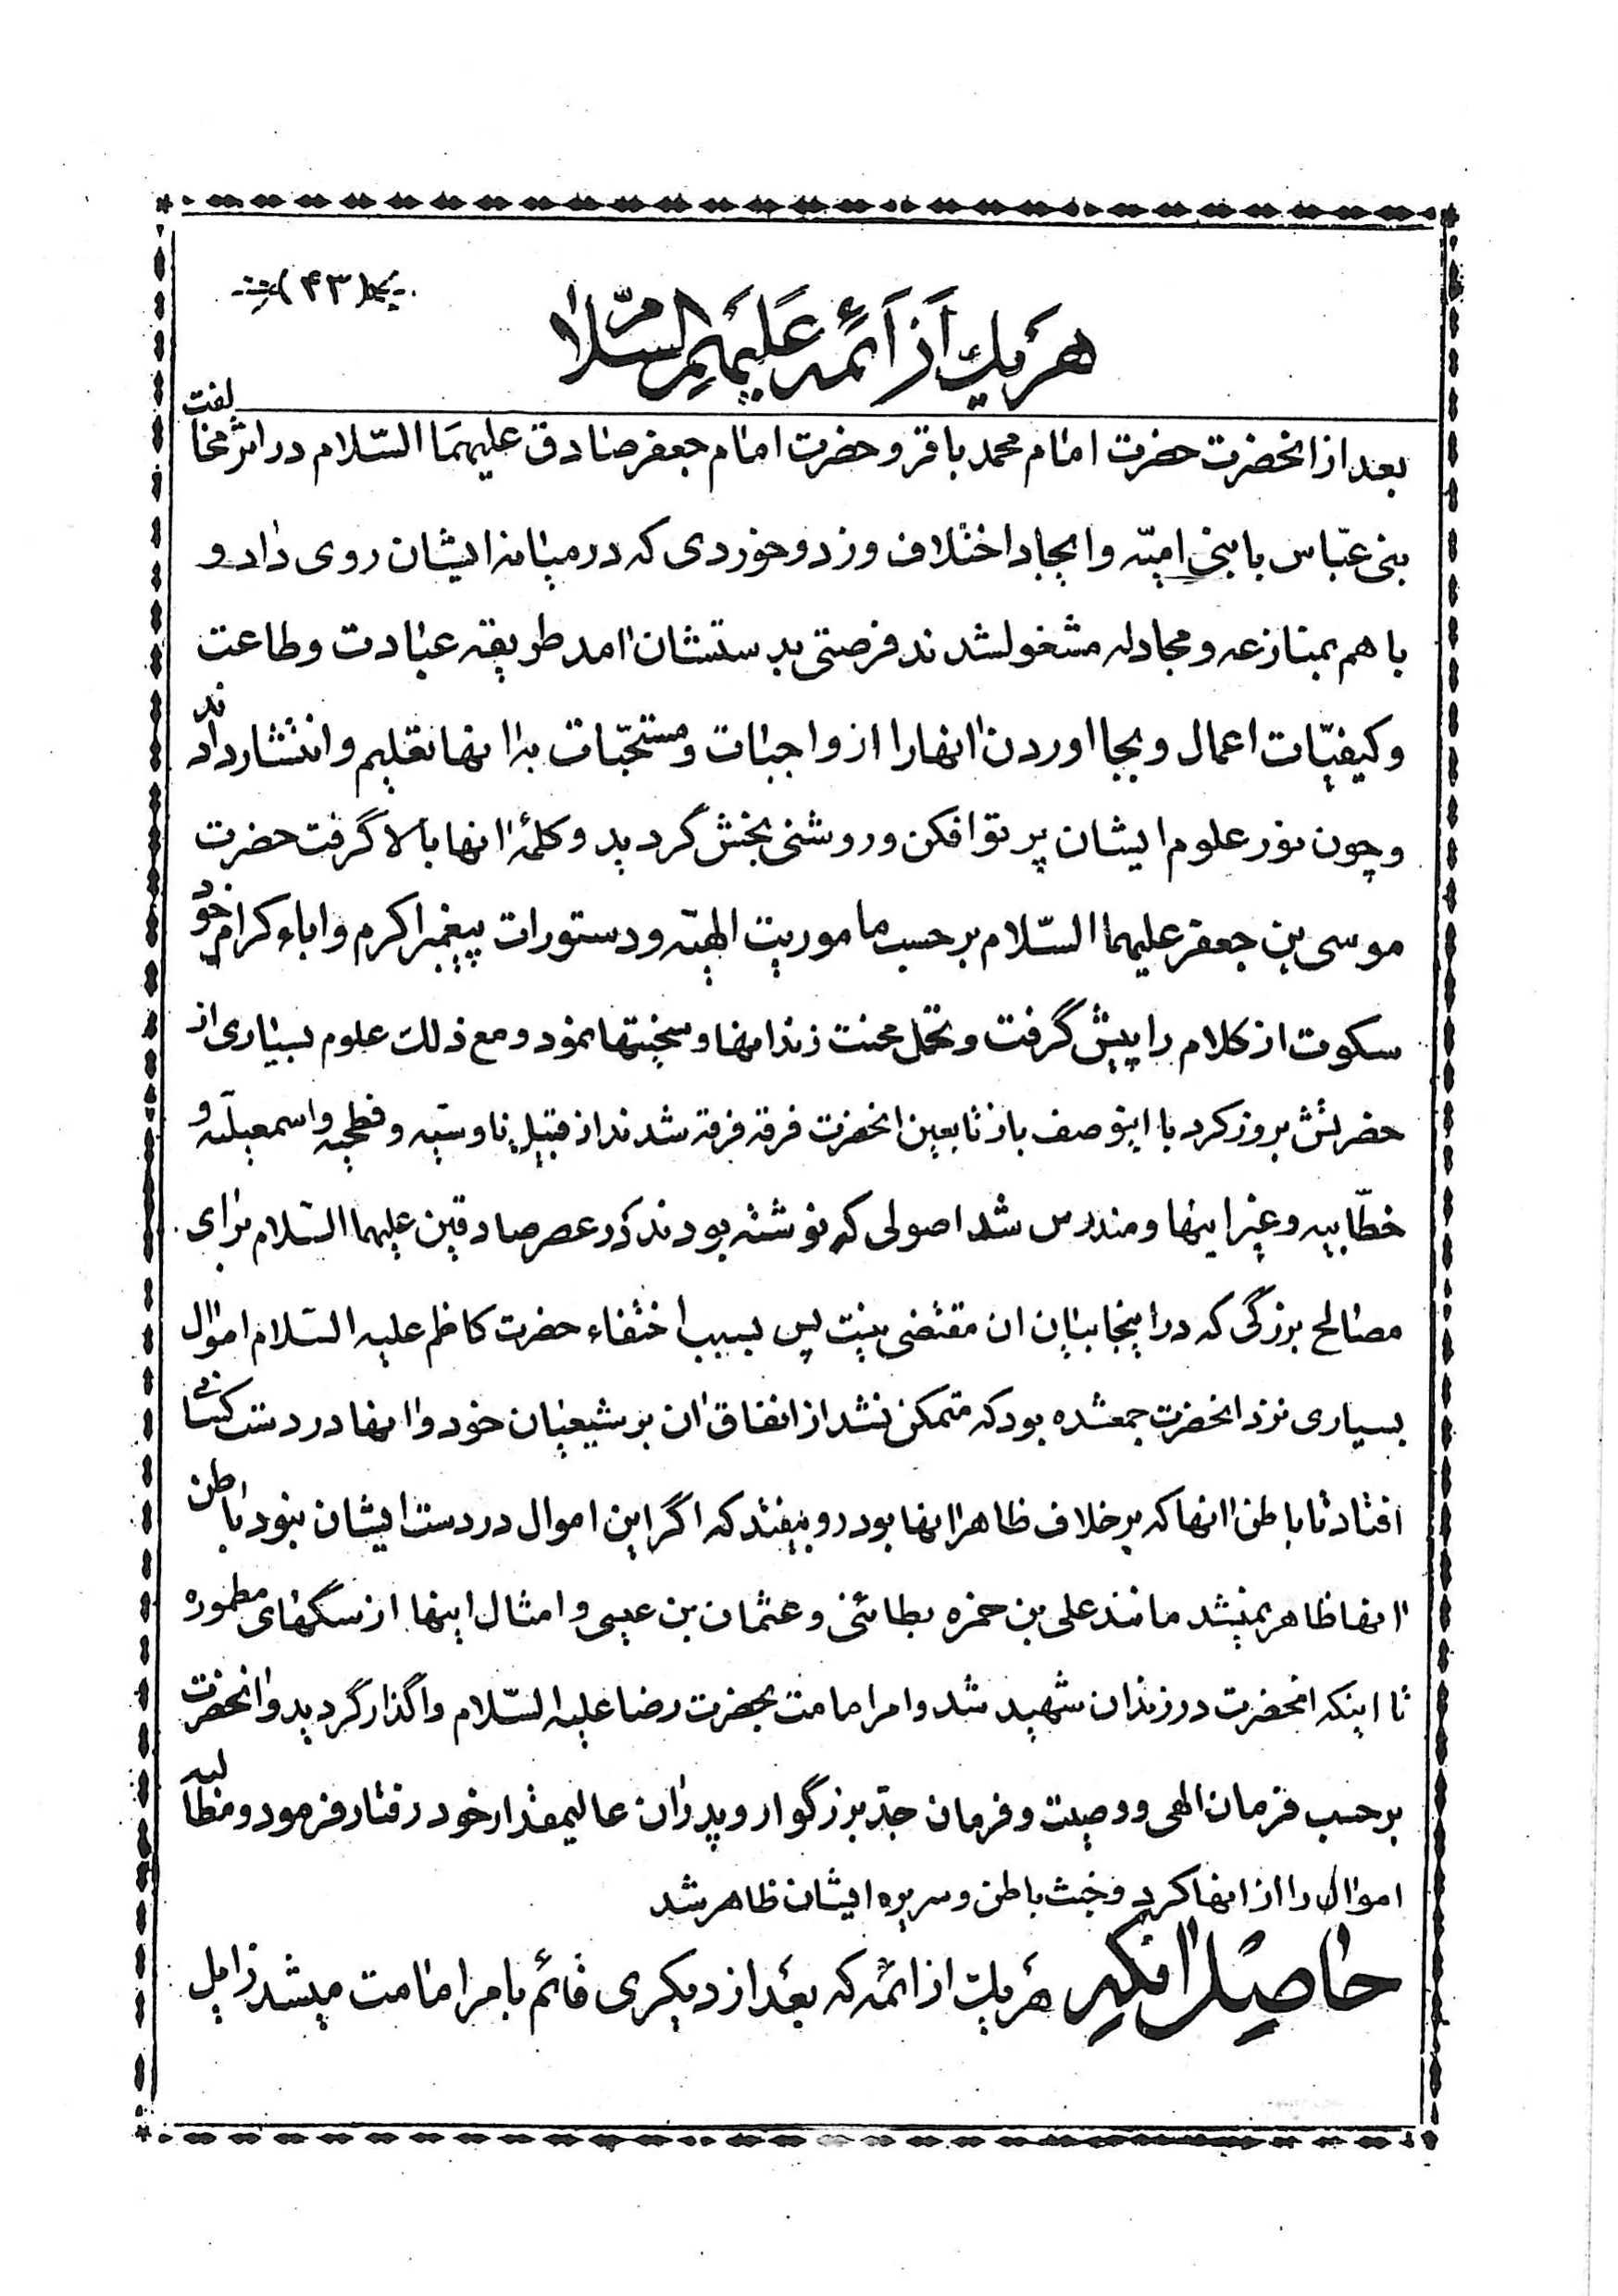 (۴۳)
هر یك از ائمه علیهم السّلام
بعد از انحضرت حضرت امام محمد باقر و حضرت امام جعفر صادق علیهما السّلام در اثر مخالفت
بنی عبّاس با بنی امیّه و ایجاد اختلاف و زد و خوردی که در میانه ایشان روی داد و
با هم بمنازعه و مجادله مشغولشدند فرصتی بدستشان امد طریقه عبادت و طاعت
و کیفیّات اعمال و بجا اوردن انها را از واجبات و مستحبّات به انها تعلیم و انتشار دادند
و چون نور علوم ایشان پرتو افکن و روشنی بخش گردید و کلمۀ انها بالا گرفت حضرت
موسی بن جعفر علیهما السّلام بر حسب ماموریت الهیّه و دستورات پیغمبر اکرم و اباء کرام خود
سکوت از کلام را پیش گرفت و تحمل محنت زندانها و سختیها نمود و مع ذلك علوم بسیاری از
حضرتش بروز کرد با اینوصف باز تابعین انحضرت فرقه فرقه شدند از قبیل ناوسیّه و فطحیه و اسمعیلیّه و
خطّابیه و غیر اینها و مندرس شد اصولی که نوشته بودند در عصر صادقین علیهما السّلام برای
مصالح بزرگی که در اینجا بیان ان مقتضی نیست پس بسبب اختفاء حضرت کاظم علیه السّلام اموال
بسیاری نزد انحضرت جمعشده بود که متمکن نشد از انفاق ان بر شیعیان خود و انها در دست کسانی
افتاد تا باطن انها که بر خلاف ظاهر انها بود رو بیفتد که اگر این اموال در دست ایشان نبود باطن
انها ظاهر نمیشد مانند علی بن حمزه بطائنی و عثمان بن عیسی و امثال اینها از سگهای ممطوره
تا اینکه انحضرت در زندان شهید شد و امر امامت بحضرت رضا علیه السّلام واگذار گردید و انحضرت
بر حسب فرمان الهی و وصیت و فرمان جدّ بزرگوار و پدران عالیمقدار خود رفتار فرمود و مطالبه
اموال را از انها کرد و خبث باطن و سریره ایشان ظاهر شد
حاصل انکه هر یك از ائمه که بعد از دیگری قائم بامر امامت میشد از اهل